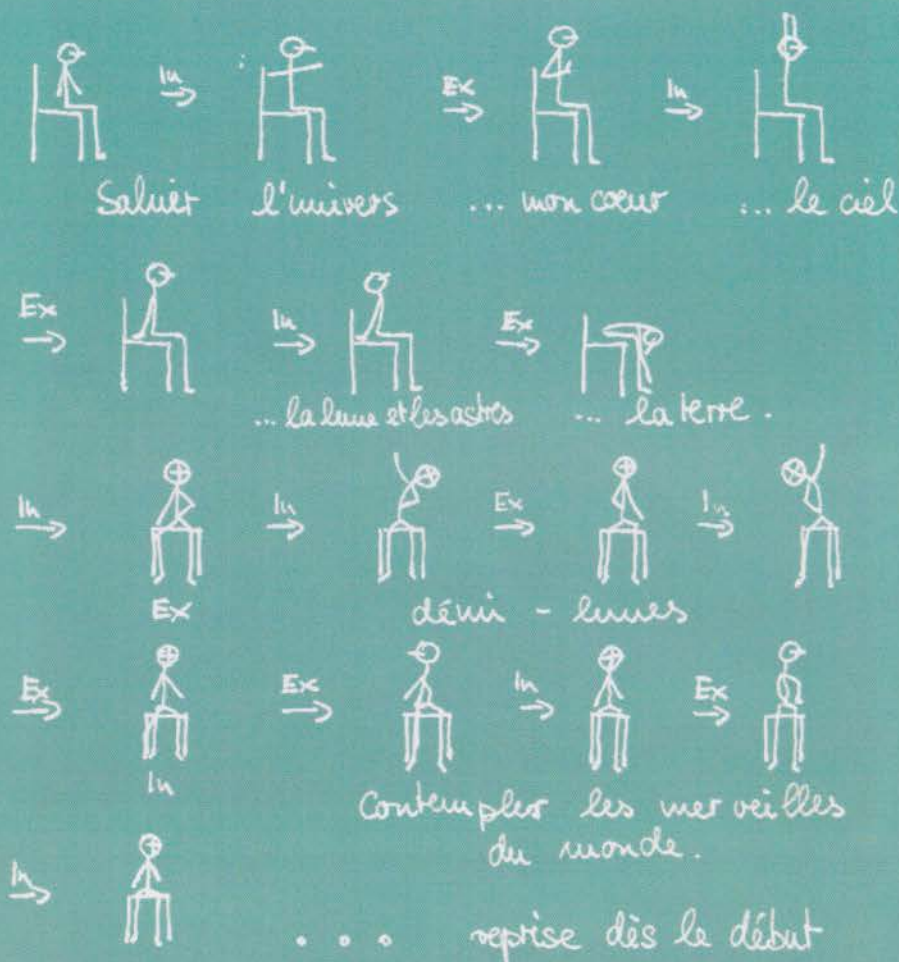 In Ex In
Saluer l'univers ... mon coeur ... le ciel
Ex In Ex
... la lune et les astres ... la terre.
In In Ex In
Ex demi - lunes
Ex Ex In Ex
In
Contempler les merveilles
du monde.
In
... reprise dès le début